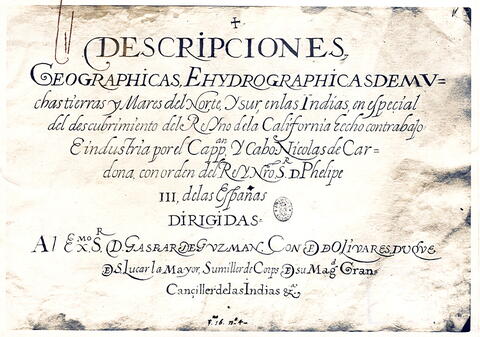 DESCRIPCIONES
GEOGRAPHICAS, E HYDROGRAPHICAS DE MV=
chas tierras y Mares del Norte, Y sur, en las Indias, en especial
del descubrimiento del Reyno de la California hecho con trabajo
E industria por el Capp.an Y Cabo Nicolas de Car=
dona, con orden del Rey Nro S.R D. Phelipe
III, de las Españas
DIRIGIDAS
Al EX.MO S.R D. GASPAR DE GVZMAN, CONDE D OLIVARES DVQVE
D S. Lucar la Mayor, Sumiller de Corps D su Mag.d Gran
Cançiller de las Indias &.a